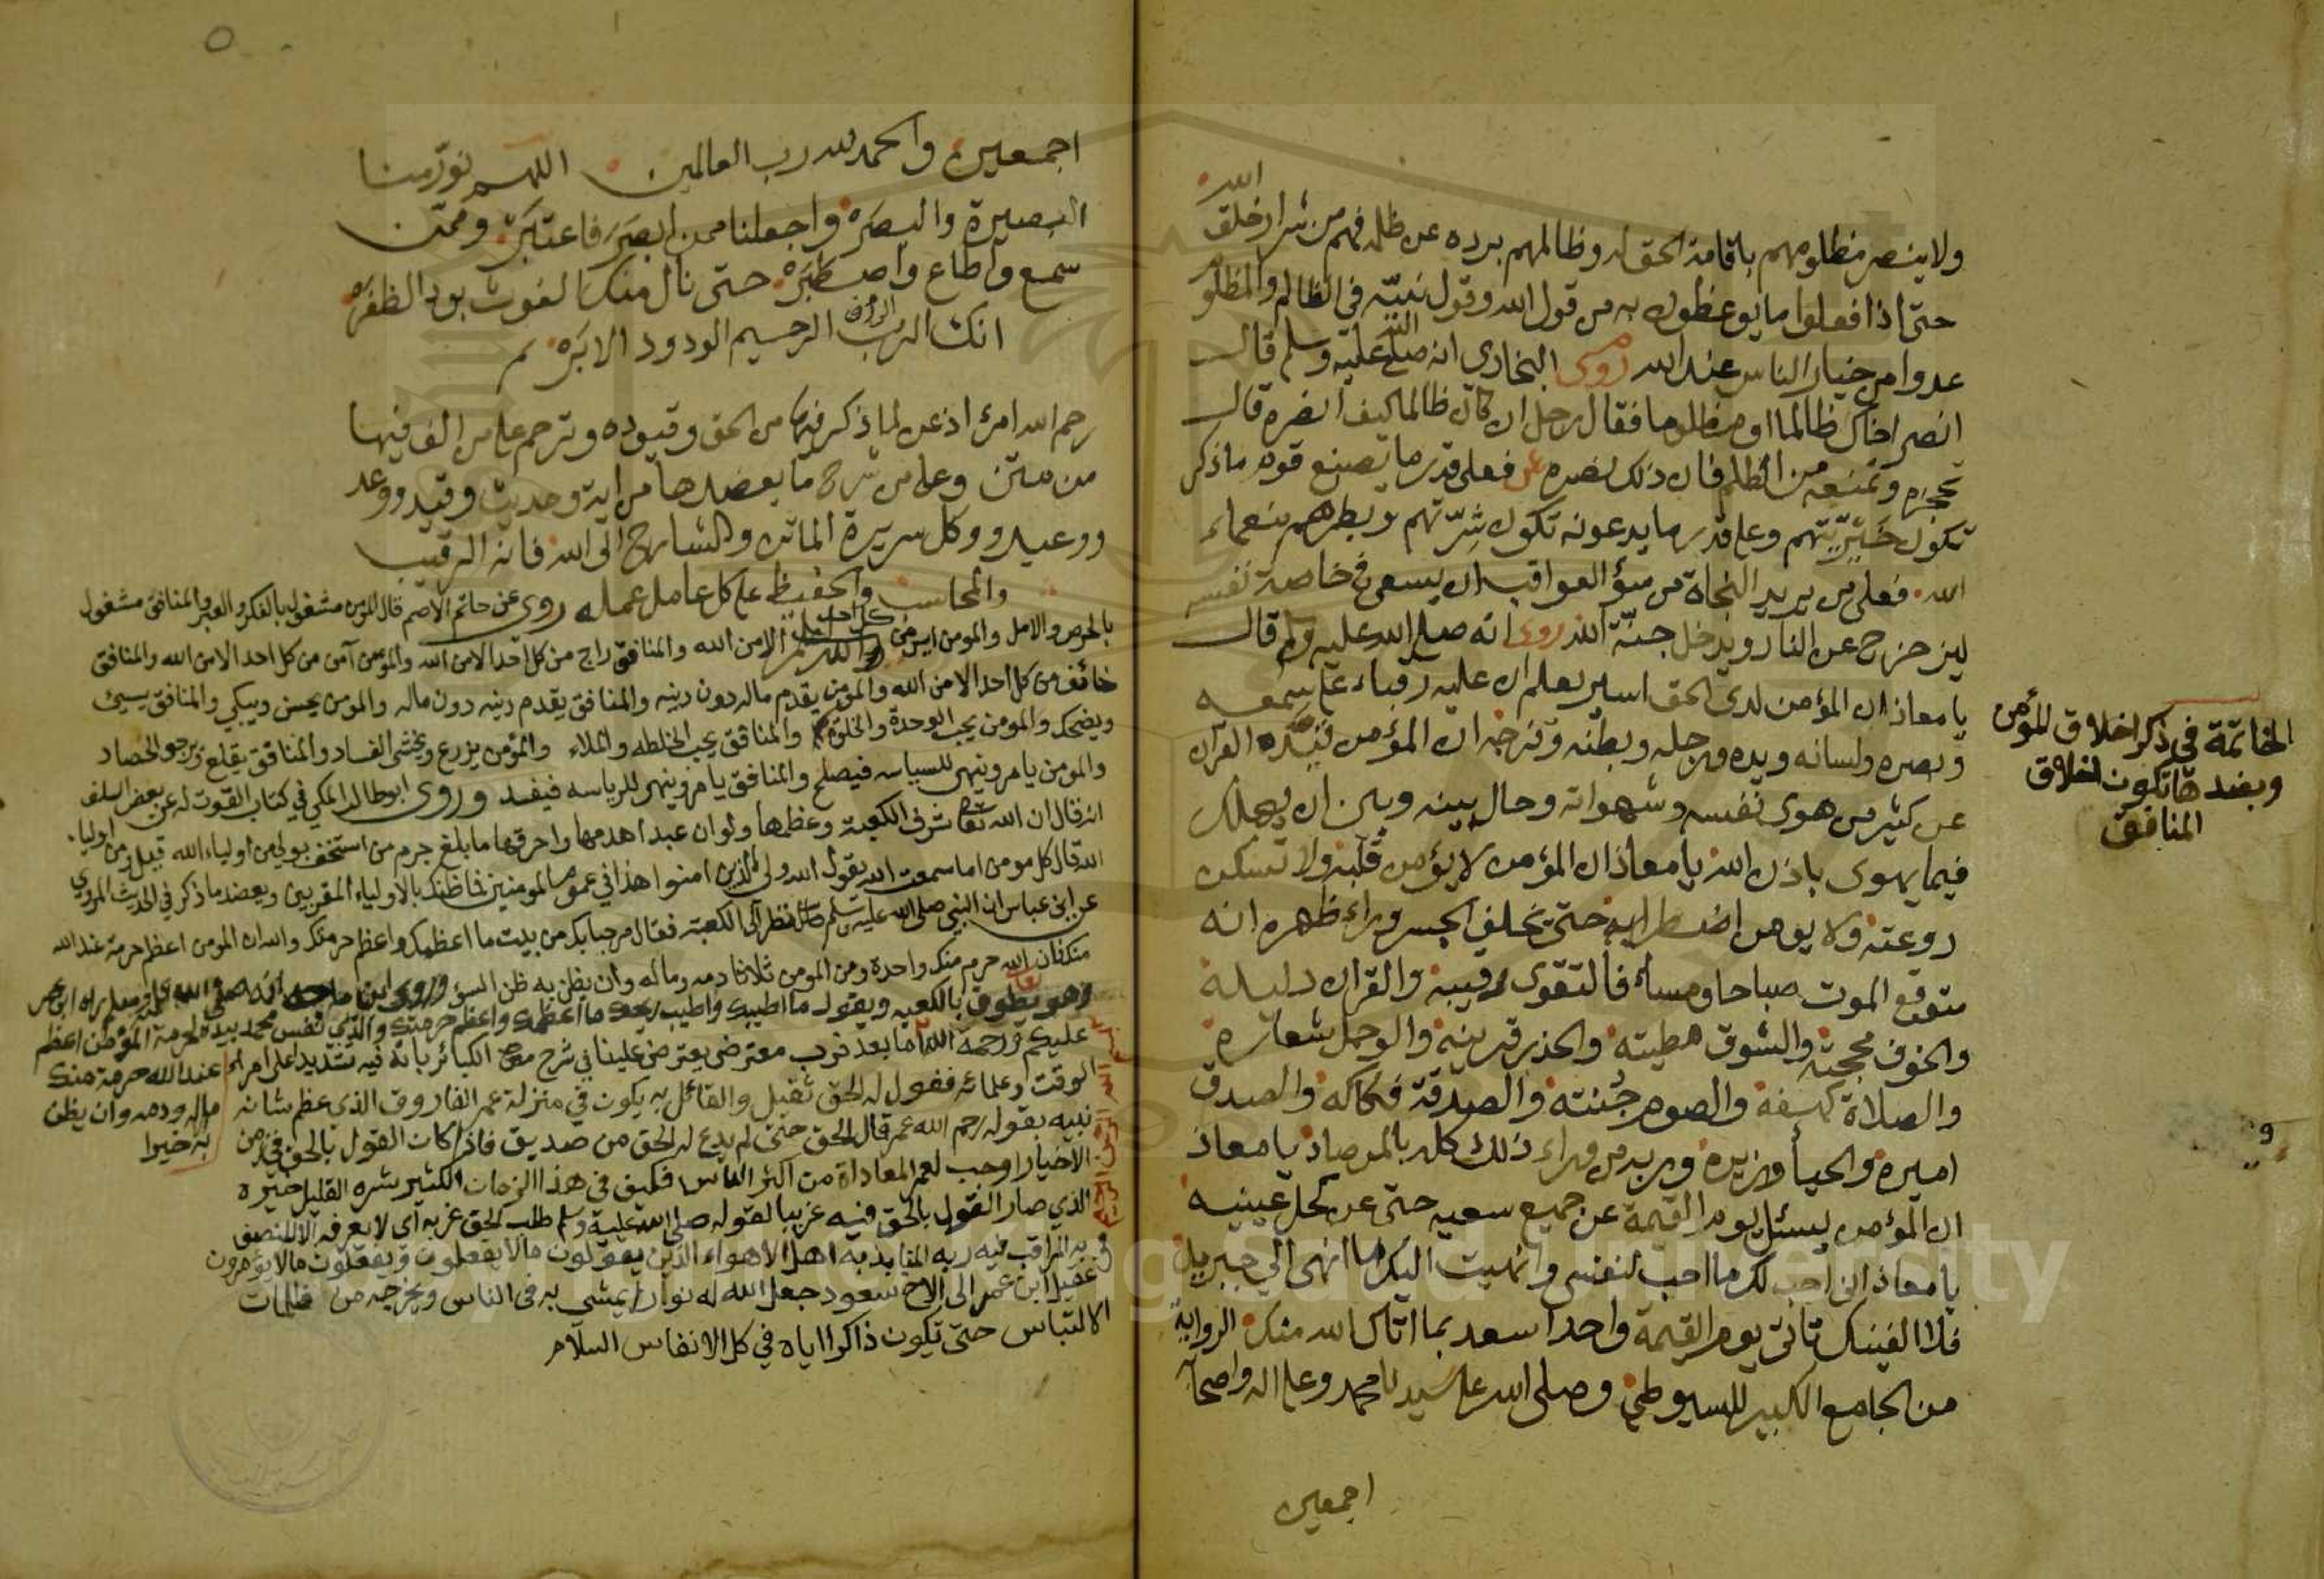 ولا ينصر مظلومهم باقامة الحق له وظالمهم برده عن ظلمه فهم من شرار خلق الله
حتى اذا فعلوا ما يوعظون به من قول الله وقول نبيّه في الظالم والمظلوم
عدوا من خيار الناس عند الله روى البخاري انه صلى الله عليه وسلم قال
انصر اخاك ظالما او مظلوما فقال رجل ان كان ظالما كيف انصره قال
تحجزه وتمنعه من الظلم فان ذلك نصره فعلى قدر ما يصنع قوم ما ذكر
تكون خيريتهم وعلى قدر ما يدعونه تكون شرّتهم وبطرهم بنعماء
الله فعلى من يريد النجاة من سؤ العواقب ان يسعى في خاصة نفسه
ليزحزح عن النار ويدخل جنّة الله روى انه صلى الله عليه وسلم قال
يا معاذ ان المؤمن لدى الحق اسير يعلم ان عليه رقباء على سمعه
وبصره ولسانه ويده ورجله وبطنه وفرجه ان المؤمن قيده القرآن
عن كثير من هوى نفسه وشهواته وحال بينه وبين ان يهلك
فيما يهوى باذن الله يا معاذ ان المؤمن لا يؤمن قلبه ولا تسكن
روعته ولا يومن اضطرابه حتى يخلف الجسر وراء ظهره انه
متوقع الموت صباحا ومساء فالتقوى رقيبه والقرآن دليله
والخوف محجته والشوق مطيته والحذر قرينه والوجل شعاره
والصلاة كهفه والصوم جُنته والصدقة فكاكه والصدق
اميره والحيا وزيره وربه من وراء ذلك كله بالمرصاد يا معاذ
ان المؤمن ليسئل يوم القيمة عن جميع سعيه حتى عن كحل عينيه
يا معاذ انى احب لك ما احب لنفسى وانهيت اليك ما انهى الي جبريل
فلا الفينك تاتى يوم القيمة واحدا اسعد بما اتاك الله منك الرواية
من الجامع الكبير للسيوطي وصلى الله على سيدنا محمد وعلى اله واصحابه
اجمعين
الخاتمة في ذكر اخلاق المؤمن
وبضدها تكون اخلاق
المنافق
اجمعين والحمد لله رب العالمين اللهم نوّر منا
البصيرة والبصره واجعلنا ممن ابصر فاعتبره وممّن
سمع واطاع واصطبره حتى نال منك الغوث بود الظفره
انك الرب الرؤف الرحيم الودود الابره
رحم الله امرئ اذعن لما ذكر فيها من الحق وقيوده وترحم على من الف فيها
من متن وعلى من شرح ما يعضدها من اية وحديث وقيد ووعد
ووعيد ووكل سريرة الماتن والشارح الى الله فانه الرقيب
والمحاسب والحفيظ على كل عامل عمله روى عن حاتم الاصم قال المومن مشغول بالفكر والعبر والمنافق مشغول
بالحرص والامل والمومن ايس من كل احد الا من الله والمنافق راج من كل احد الا من الله والمؤمن آمن من كل احد الا من الله والمنافق
خائف من كل احد الا من الله والمؤمن يقدم ماله دون دينه والمنافق يقدم دينه دون ماله والمومن يحسن ويبكي والمنافق يسيئ
ويضحك والمومن يحب الوحدة والخلوة والمنافق يحب الخلطه والملاء والمؤمن يزرع ويخشى الفساد والمنافق يقلع ويرجو الحصاد
والمومن يامر وينهى للسياسه فيصلح والمنافق يامر وينهى للرياسه فيفسد وروى ابو طالب المكي في كتاب القوت له عن بعض السلف
انه قال ان الله تعالى شرف الكعبة وعظمها ولو ان عبدا هدمها واحرقها ما بلغ جرم من استخف بولي من اولياء الله قيل ومن اولياء
الله قال كل مومن اما سمعت الله يقول الله ولي الذين امنوا هذا في عموم المومنين فما ظنك بالاولياء المقربين ويعضد ما ذكر في الحديث المروي
عن ابن عباس ان النبي صلى الله عليه وسلم نظر الى الكعبة فقال مرحبا بك من بيت ما اعظمك واعظم حرمتك والله ان المومن اعظم حرمة عند الله
منك فان الله حرم منك واحدة ومن المومن ثلاثا دمه وماله وان يظن به ظن السوء وروى ابن ماجه انه صلى الله عليه وسلم راه ابن عمر
وهو يطوف بالكعبه ويقول ما اطيبك واطيب ريحك ما اعظمك واعظم حرمتك والذي نفس محمد بيده لحرمة المؤمن اعظم
عند الله حرمة منك
ماله ودمه وان يظن
به خيرا
عليكم ورحمة الله اما بعد فرب معترض يعترض علينا في شرح الكبائر بانه فيه تشديد على امراء
الوقت وعلمائه فنقول له الحق ثقيل والقائل به يكون في منزلة عمر الفاروق الذي عظم شانه
نبيه بقوله رحم الله عمر قال الحق حتى لم يدع له الحق من صديق فاذا كان القول بالحق في زمن
الاخيار اوجب لعمر المعاداة من اكثر الناس فكيف في هذا الزمان الكثير شره القليل خيره
الذي صار القول بالحق فيه غريبا لقوله صلى الله عليه وسلم طلب الحق غربه اى لا يعرفه الا المنصف
به المراقب فيه ربه المنابذ به اهل الاهواء الذين يقولون ما لا يفعلون ويفعلون ما لا يؤمرون
عقيل ابن عمر الى الاخ سعود جعل الله له نورا يمشي به في الناس ويخرجه من ظلمات
الالتباس حتى تكون ذاكرا اياه في كل الانفاس السلام
King Saud University